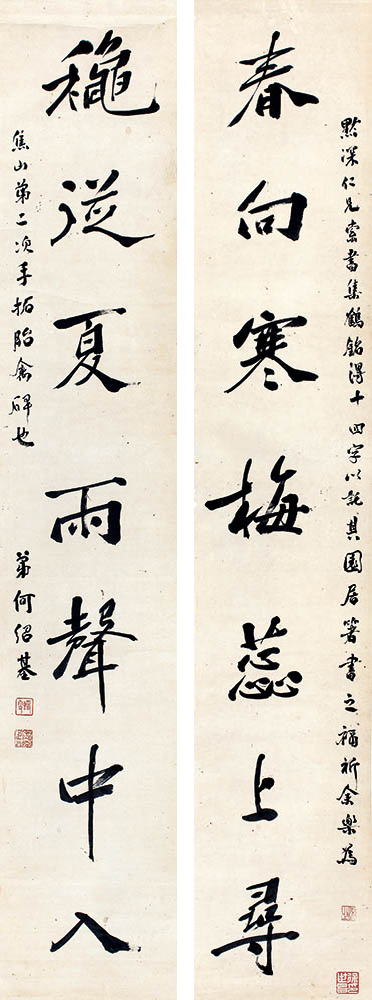 默深仁兄索書集鶴銘得十四字以託其園居箸書之福祈余樂為
春向寒梅蕊上尋
穐從夏雨聲中入
焦山第二次手拓胎禽碑也
弟何紹基